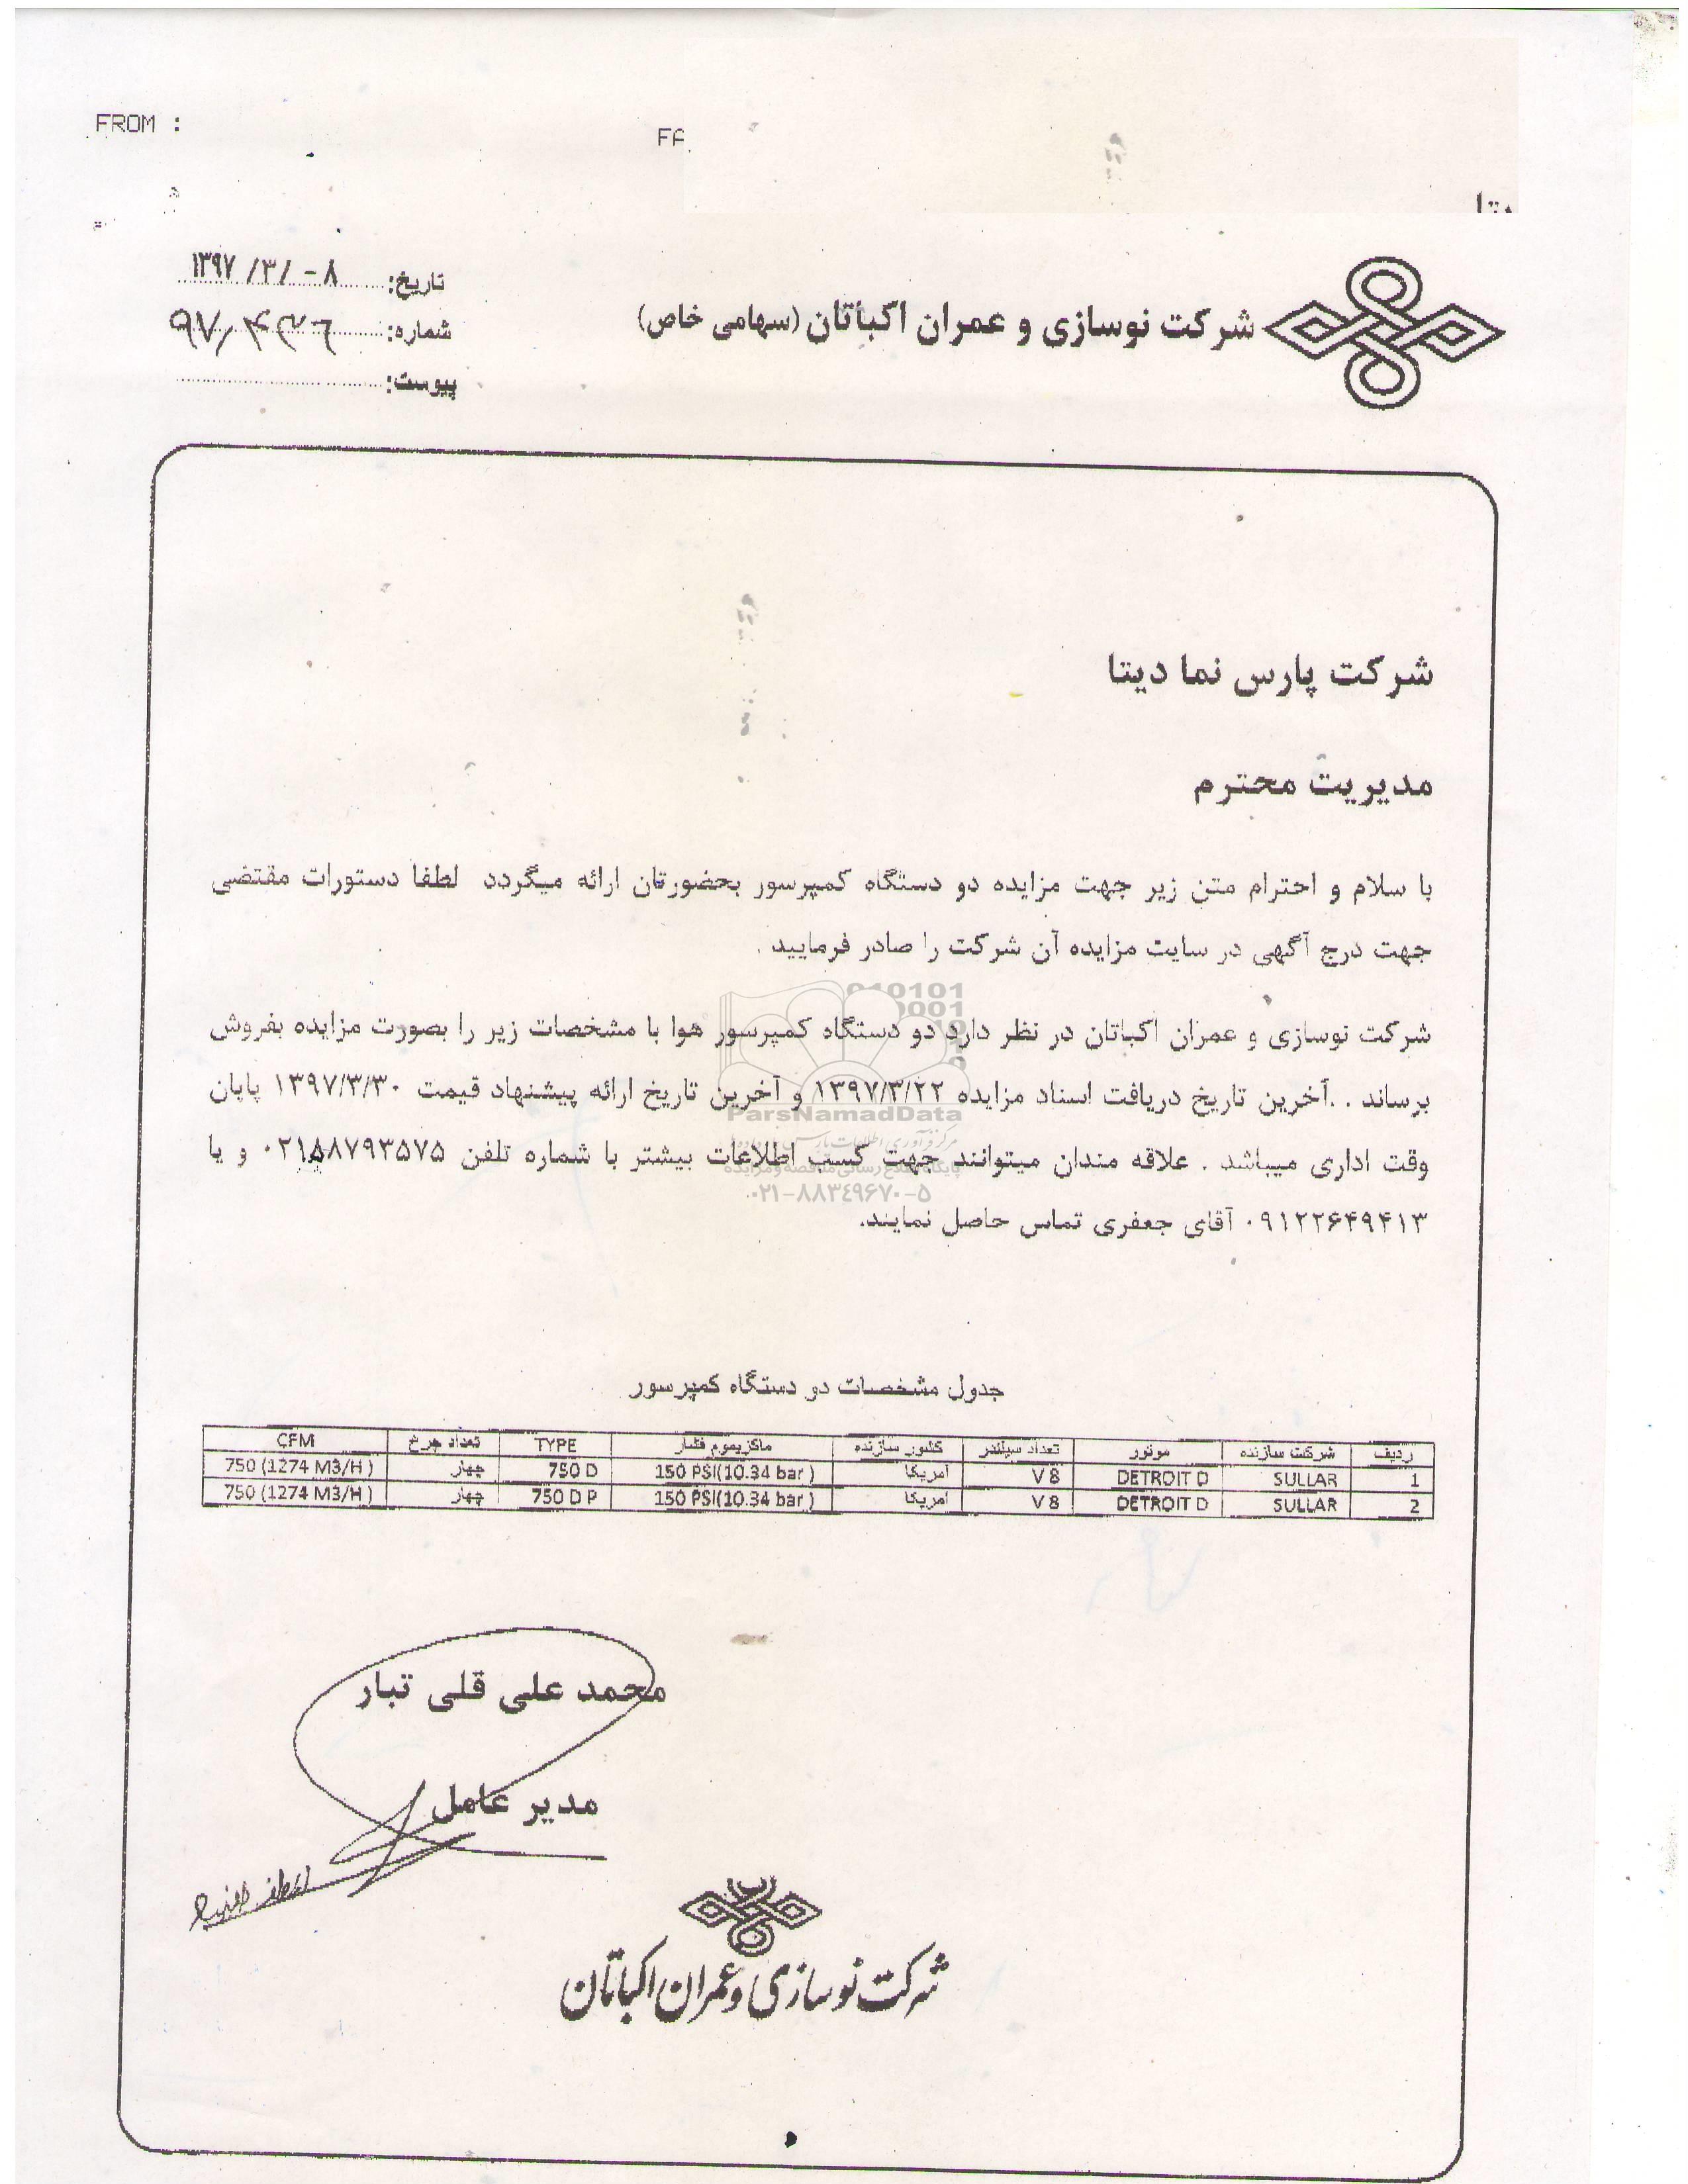 FROM :
FA
تاریخ: ۱۳۹۷ /۳/ -۸
شرکت نوسازی و عمران اکباتان (سهامی خاص)
شماره:
پیوست:
شرکت پارس نما دیتا
مدیریت محترم
با سلام و احترام متن زیر جهت مزایده دو دستگاه کمپرسور بحضورتان ارائه میگردد لطفا دستورات مقتضی
جهت درج آگهی در سایت مزایده آن شرکت را صادر فرمایید .
شرکت نوسازی و عمران اکباتان در نظر دارد دو دستگاه کمپرسور هوا با مشخصات زیر را بصورت مزایده بفروش
برساند . .آخرین تاریخ دریافت اسناد مزایده ۱۳۹۷/۳/۲۲ و آخرین تاریخ ارائه پیشنهاد قیمت ۱۳۹۷/۳/۳۰ پایان
وقت اداری میباشد . علاقه مندان میتوانند جهت کسب اطلاعات بیشتر با شماره تلفن ۰۲۱۸۸۷۹۳۵۷۵ و یا
۰۹۱۲۲۶۴۹۴۱۳ آقای جعفری تماس حاصل نمایند.
ParsNamadData
۰۲۱-۸۸۳۴۹۶۷۰-۵
جدول مشخصات دو دستگاه کمپرسور
ردیف شرکت سازنده موتور تعداد سیلندر کشور سازنده ماکزیموم فشار TYPE تعداد چرخ CFM
1 SULLAR DETROIT D V 8 آمریکا 150 PSI(10.34 bar ) 750 D چهار 750 (1274 M3/H )
2 SULLAR DETROIT D V 8 آمریکا 150 PSI(10.34 bar ) 750 D P چهار 750 (1274 M3/H )
محمد علی قلی تبار
مدیر عامل
شرکت نوسازی و عمران اکباتان